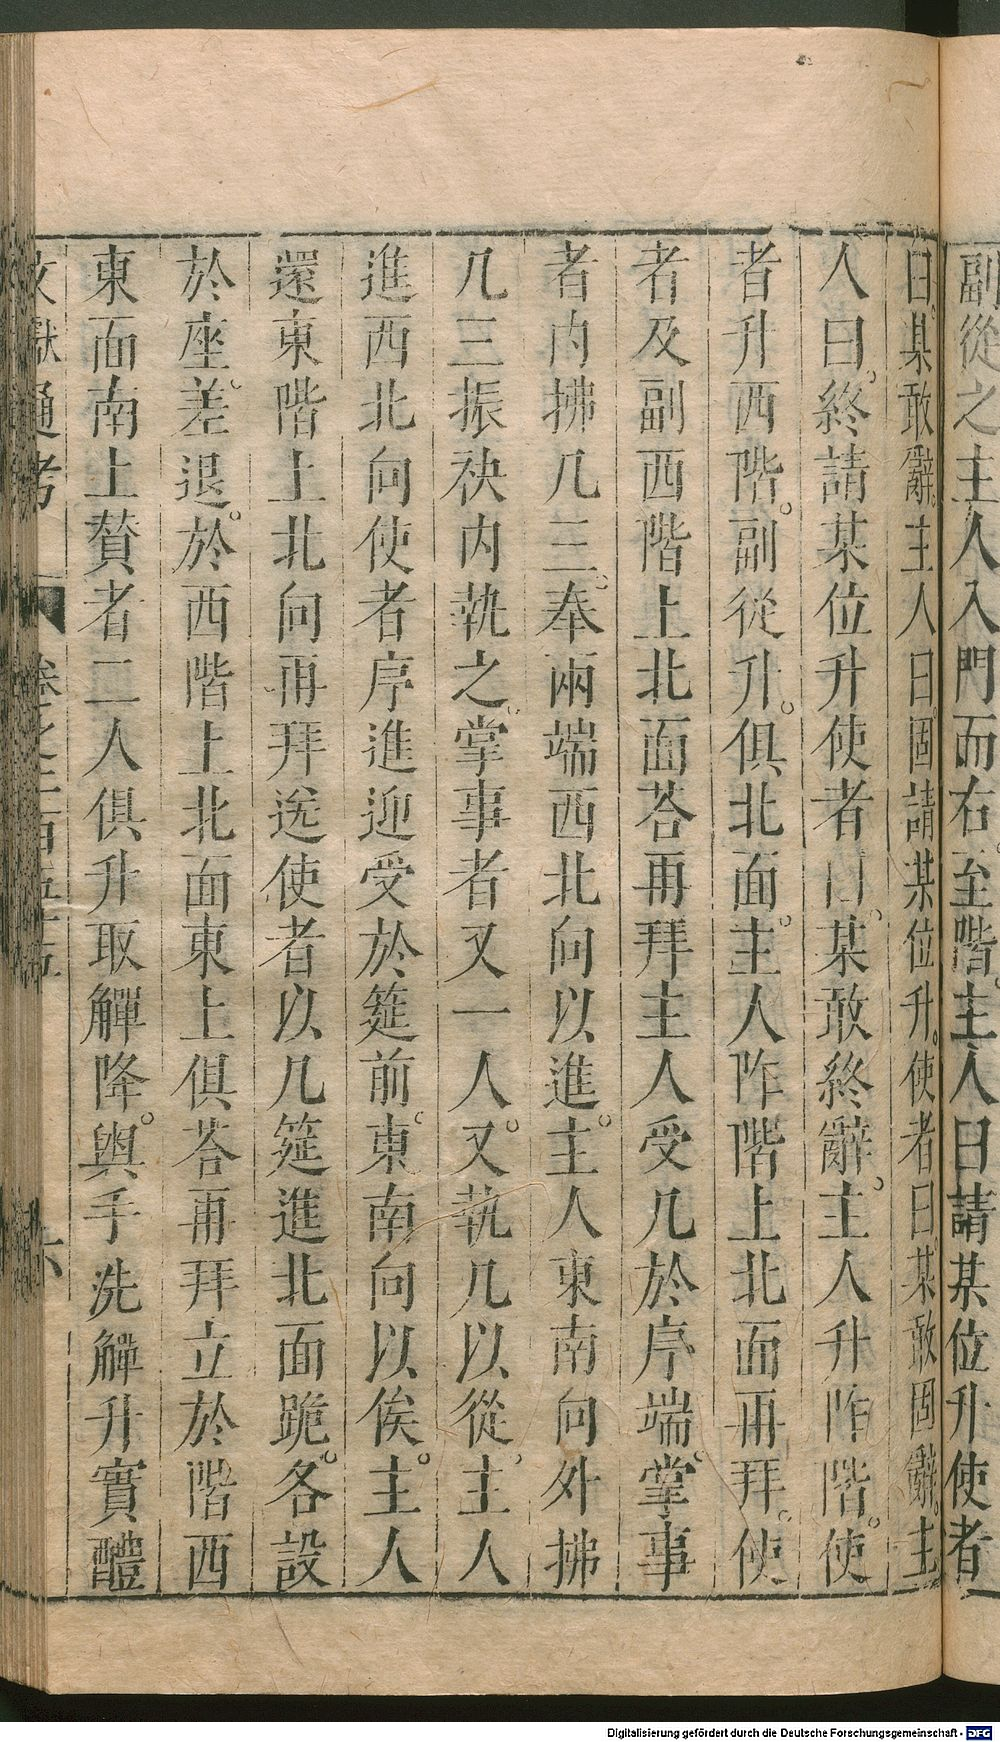 副從之主人入門而右至階主人曰請某位升使者
曰某敢辭主人曰固請某位升使者曰某敢固辭主
人曰終請某位升使者曰某敢終辭主人升阼階使
者升西階副從升俱北面主人阼階上北面再拜使
者及副西階上北面荅再拜主人受几於序端掌事
者內拂几三奉兩端西北向以進主人東南向外拂
几三振袂內執之掌事者又一人又執几以從主人
進西北向使者序進迎受於筵前東南向以俟主人
還東階上北向再拜送使者以几筵進北面跪各設
於座差退於西階上北面東上俱荅再拜立於階西
東面南上贊者二人俱升取觶降與手洗觶升實醴
文獻通考
六
Digitalisierung gefördert durch die Deutsche Forschungsgemeinschaft - DFG